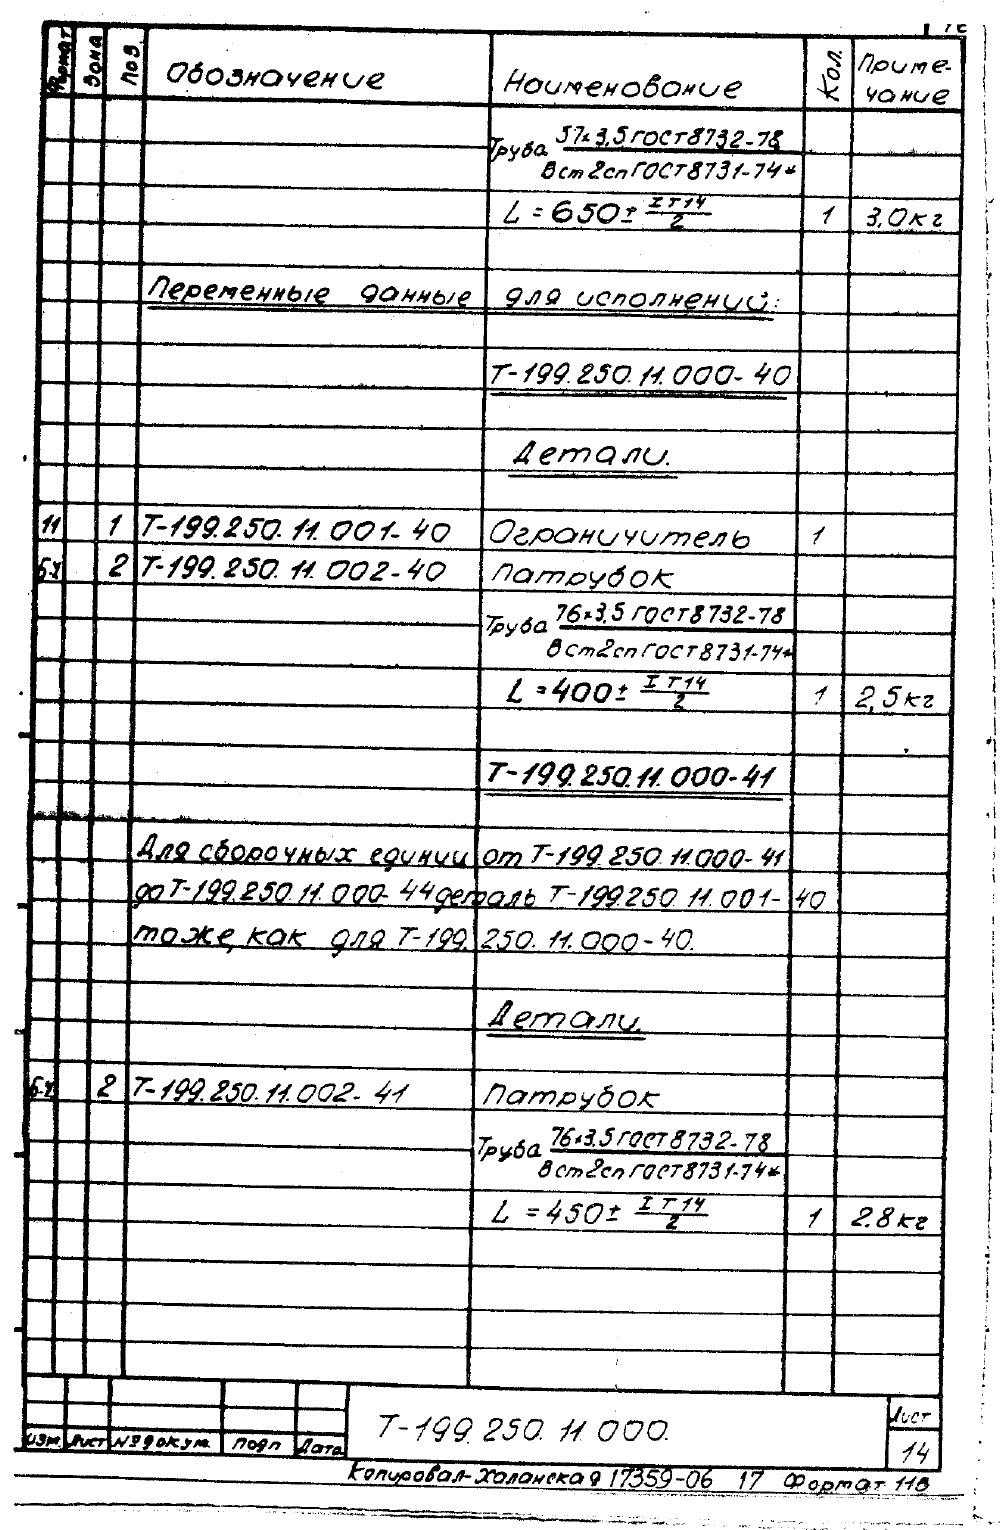 Формат Зона Поз Обозначение Наименование Кол. Приме-
чание
Труба 57×3,5 ГОСТ 8732-78
Вст2сп ГОСТ 8731-74*
L = 650 ± IT14/2 1 3,0кг
Переменные данные для исполнений:
Т-199.250.11.000-40
Детали.
11 1 Т-199.250.11.001-40 Ограничитель 1
БЧ 2 Т-199.250.11.002-40 Патрубок
Труба 76×3,5 ГОСТ 8732-78
Вст2сп ГОСТ 8731-74*
L = 400 ± IT14/2 1 2,5кг
Т-199.250.11.000-41
Для сборочных единиц от Т-199.250.11.000-41
до Т-199.250.11.000-44 деталь Т-199.250.11.001-40
тоже, как для Т-199.250.11.000-40.
Детали.
БЧ 2 Т-199.250.11.002-41 Патрубок
Труба 76×3,5 ГОСТ 8732-78
Вст2сп ГОСТ 8731-74*
L = 450 ± IT14/2 1 2.8кг
Т-199.250.11.000. Лист
14
Изм. Лист № докум. Подп Дата
Копировал-Халанская 17359-06 17 Формат 11В